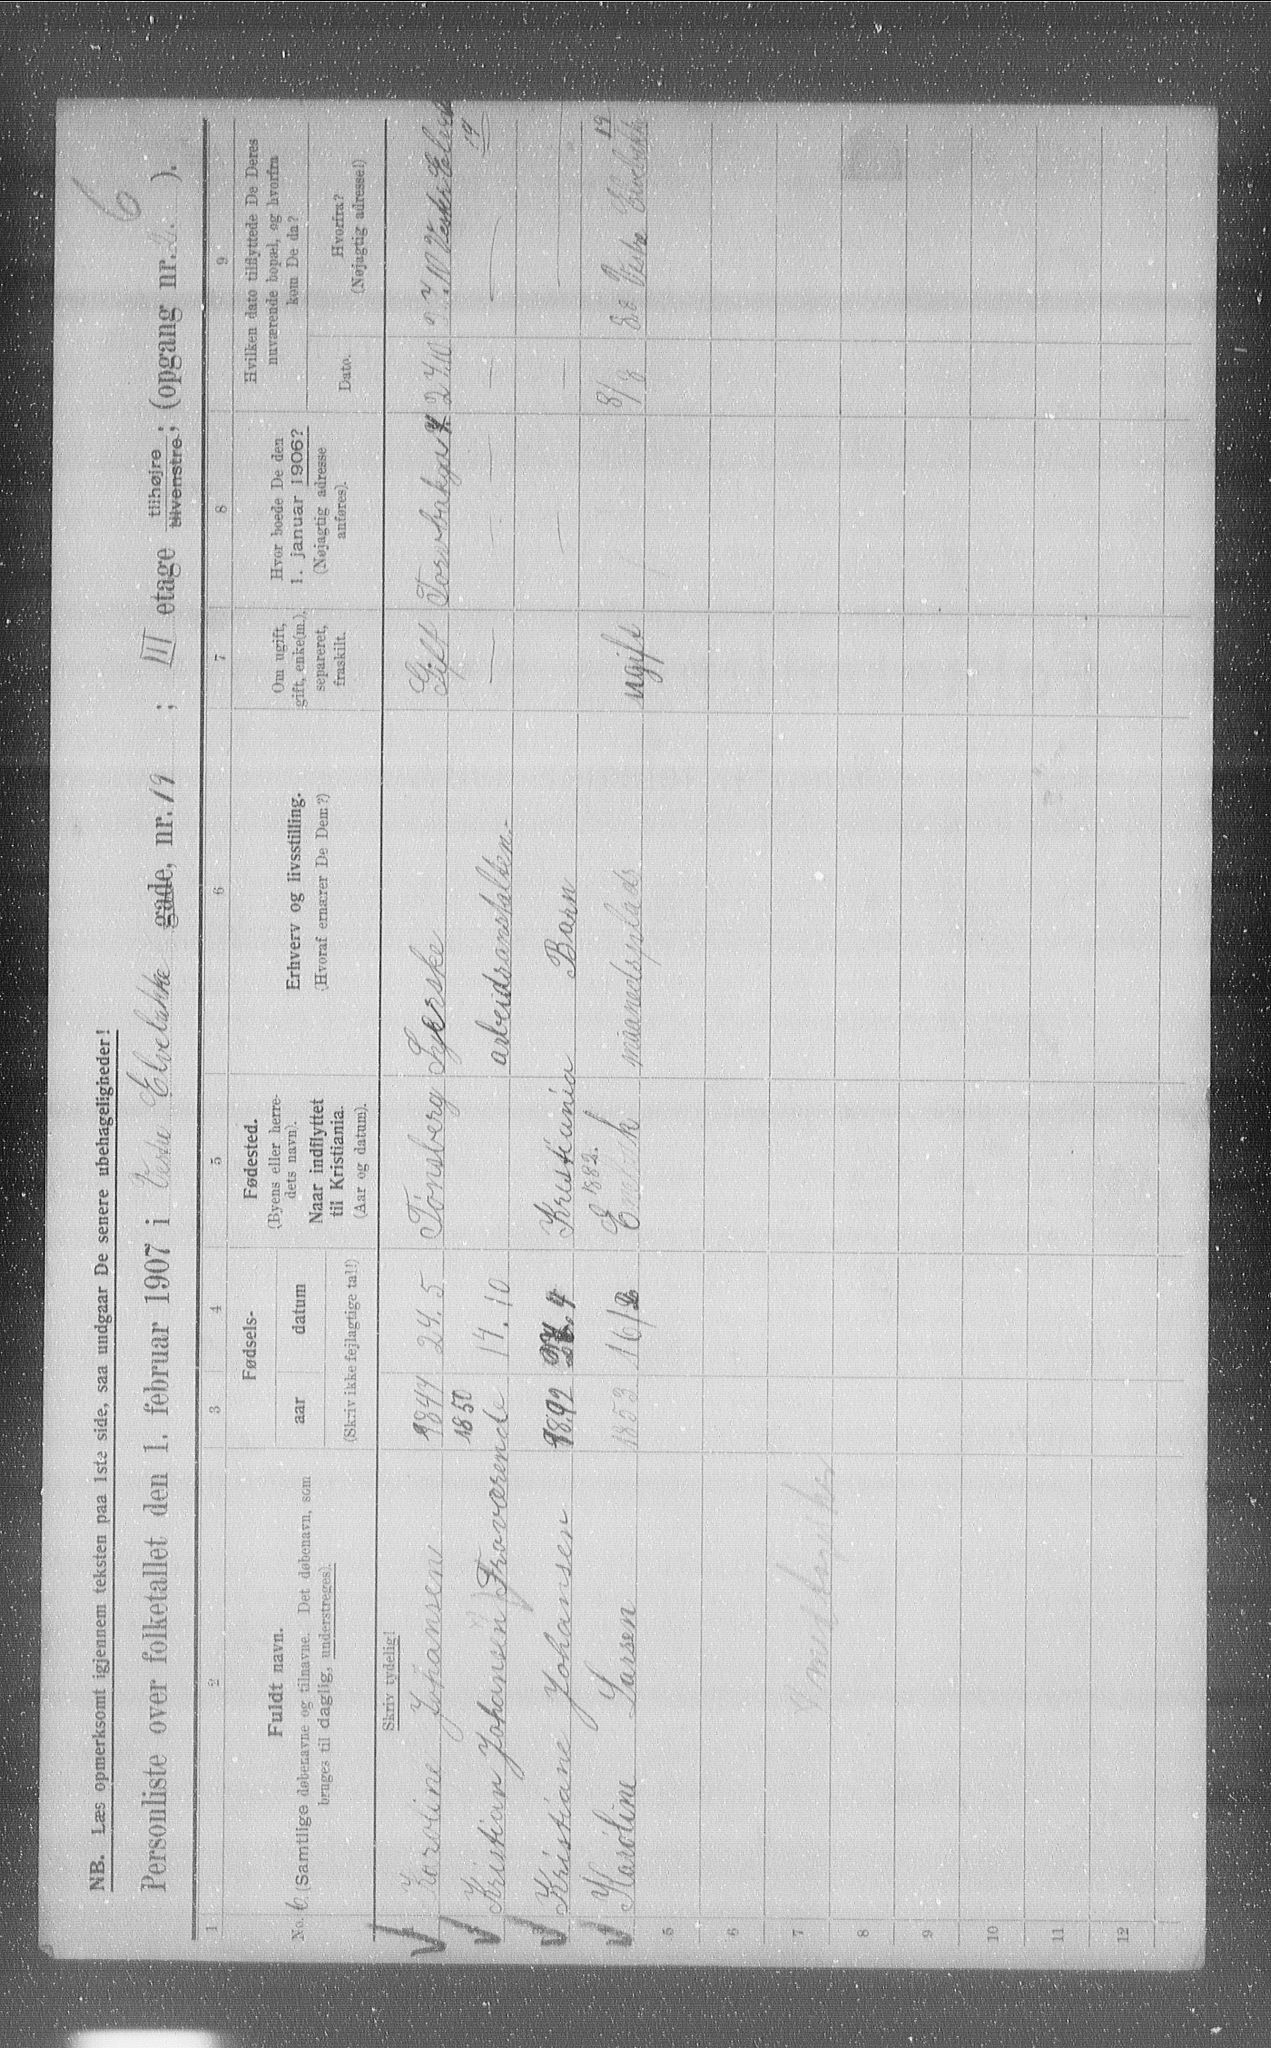 6
NB. Læs opmerksomt igjennem teksten paa 1ste side, saa undgaar De senere ubehageligheder!
Personliste over folketallet den 1. februar 1907 i Vestre Elvebakke gade, nr. 19 ; III etage tilhøjre tilvenstre; (opgang nr. ).
1 2 3 4 5 6 7 8 9
No. 6 Fuldt navn. (Samtlige døbenavne og tilnavne. Det døbenavn, som bruges til daglig, understreges).
Fødsels-
aar datum
(Skriv ikke fejlagtige tal!)
Fødested. (Byens eller herredets navn). Naar indflyttet til Kristiania. (Aar og datum).
Erhverv og livsstilling. (Hvoraf ernærer De Dem?)
Om ugift, gift, enke(m.), separeret, fraskilt.
Hvor boede De den 1. januar 1906? (Nøjagtig adresse anføres).
Hvilken dato tilflyttede De Deres nuværende bopæl, og hvorfra kom De da?
Dato. Hvorfra? (Nøjagtig adresse!)
Skriv tydelig!
Karoline Johansen 1844 24.5 Tønsberg Syerske Gift
Kristian Johansen Fraværende 1850 14.10 arbeidsanstalten.-
Kristiane Johansen 1892 Kristiania Barn
Karoline Larsen 1853 16/2 1882. maanedsplads ugift 8/8 Vestre Elvebakke 19
5
6
7
8
9
10
11
12